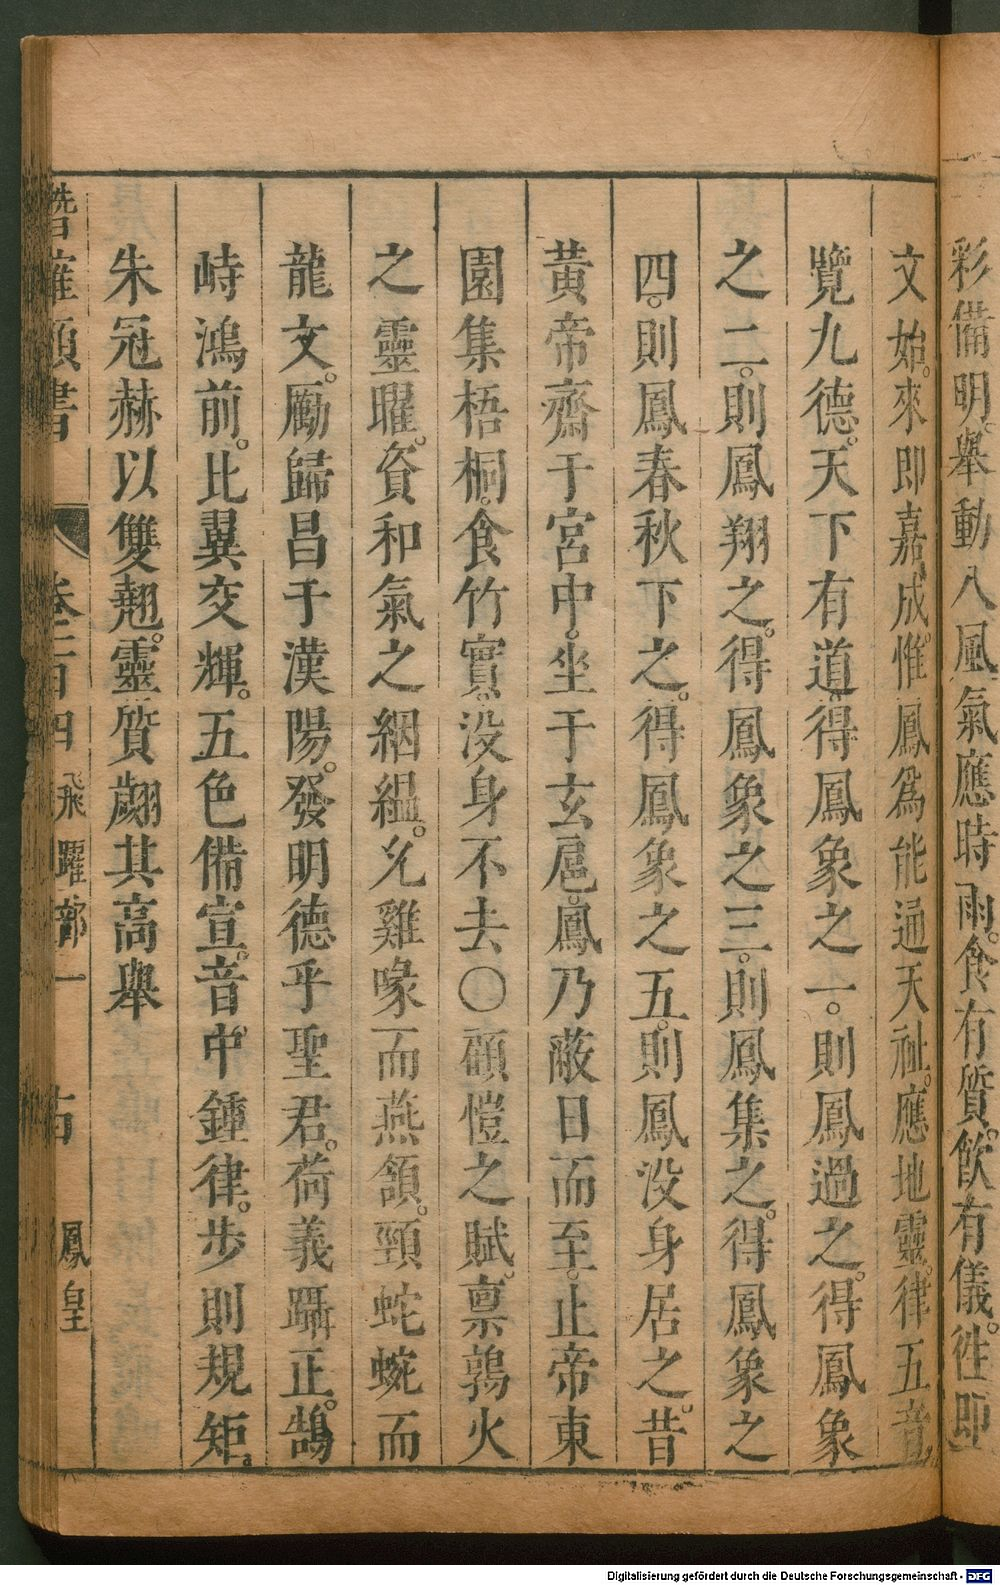 彩備明。舉動八風。氣應時雨。食有質。飲有儀。徃即
文始。來即嘉成。惟鳳爲能通天祉。應地靈。律五音。
覽九德。天下有道。得鳳象之一。則鳳過之。得鳳象
之二。則鳳翔之。得鳳象之三。則鳳集之。得鳳象之
四。則鳳春秋下之。得鳳象之五。則鳳没身居之。昔
黃帝齋于宮中。坐于玄扈。鳳乃蔽日而至。止帝東
園集梧桐。食竹實。没身不去〇顧愷之賦。禀鶉火
之靈曜。資和氣之絪縕。允雞喙而燕頷。頸蛇蜿而
龍文。勵歸昌于漢陽。發明德乎聖君。荷義躡正。鵠
峙鴻前。比翼交輝。五色備宣。音中鍾律。步則規矩。
朱冠赫以雙翹。靈質翽其高舉
潛確類書 卷一百四 飛躍部一 鳳皇
Digitalisierung gefördert durch die Deutsche Forschungsgemeinschaft - DFG